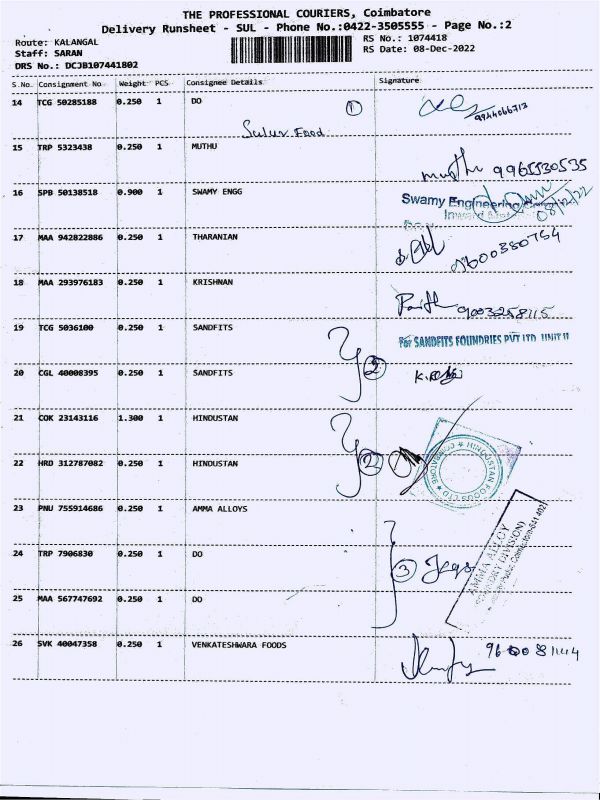 THE PROFESSIONAL COURIERS, Coimbatore
Delivery Runsheet - SUL - Phone No.:0422-3505555 - Page No.:2
Route: KALANGAL
RS No.: 1074418
Staff: SARAN
RS Date: 08-Dec-2022
DRS No.: DCJB107441802
S.No. Consignment No Weight PCS Consignee Details Signature
14 TCG 50285188 0.250 1 DO 1
9944066713
Sulur Food
15 TRP 5323438 0.250 1 MUTHU
muthu 9965530535
16 SPB 50138518 0.900 1 SWAMY ENGG
Swamy Engineering
08/12/22
17 MAA 942822886 0.250 1 THARANIAN
9600380764
18 MAA 293976183 0.250 1 KRISHNAN
9003258115
19 TCG 5036100 0.250 1 SANDFITS
For SANDFITS FOUNDRIES PVT LTD UNIT II
2
20 CGL 40008395 0.250 1 SANDFITS
21 COK 23143116 1.300 1 HINDUSTAN
2
HINDUSTAN FOODS LTD
22 HRD 312787082 0.250 1 HINDUSTAN
23 PNU 755914686 0.250 1 AMMA ALLOYS
AMMA ALLOY
(FOUNDRY DIVISION)
24 TRP 7906830 0.250 1 DO
3
25 MAA 567747692 0.250 1 DO
26 SVK 40047358 0.250 1 VENKATESHWARA FOODS